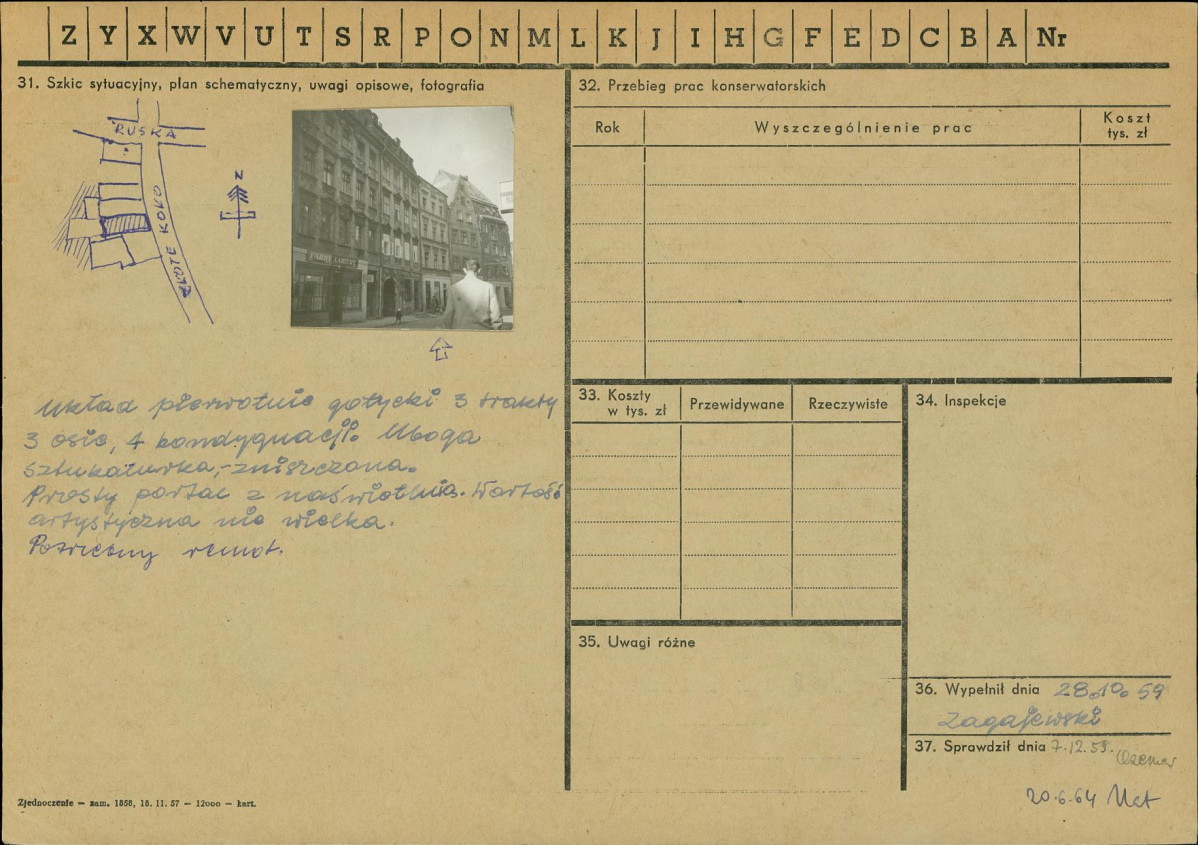 Z Y X W V U T S R P O N M L K J I H G F E D C B A Nr
31. Szkic sytuacyjny, plan schematyczny, uwagi opisowe, fotografia
RUSKA
ZŁOTE KOŁO
N
Układ pierwotnie gotycki 3 trakty
3 osie, 4 kondygnacji. Uboga
sztukaturka, - zniszczona.
Prosty portal z naświetlnią. Wartość
artystyczna nie wielka.
Potrzebny remot.
Zjednoczenie — zam. 1858, 18. 11. 57 — 12000 — kart.
32. Przebieg prac konserwatorskich
Rok Wyszczególnienie prac Koszt tys. zł
33. Koszty w tys. zł Przewidywane Rzeczywiste
34. Inspekcje
35. Uwagi różne
36. Wypełnił dnia 28.10.59
Zagajewski
37. Sprawdził dnia 7.12.59.
20.6.64